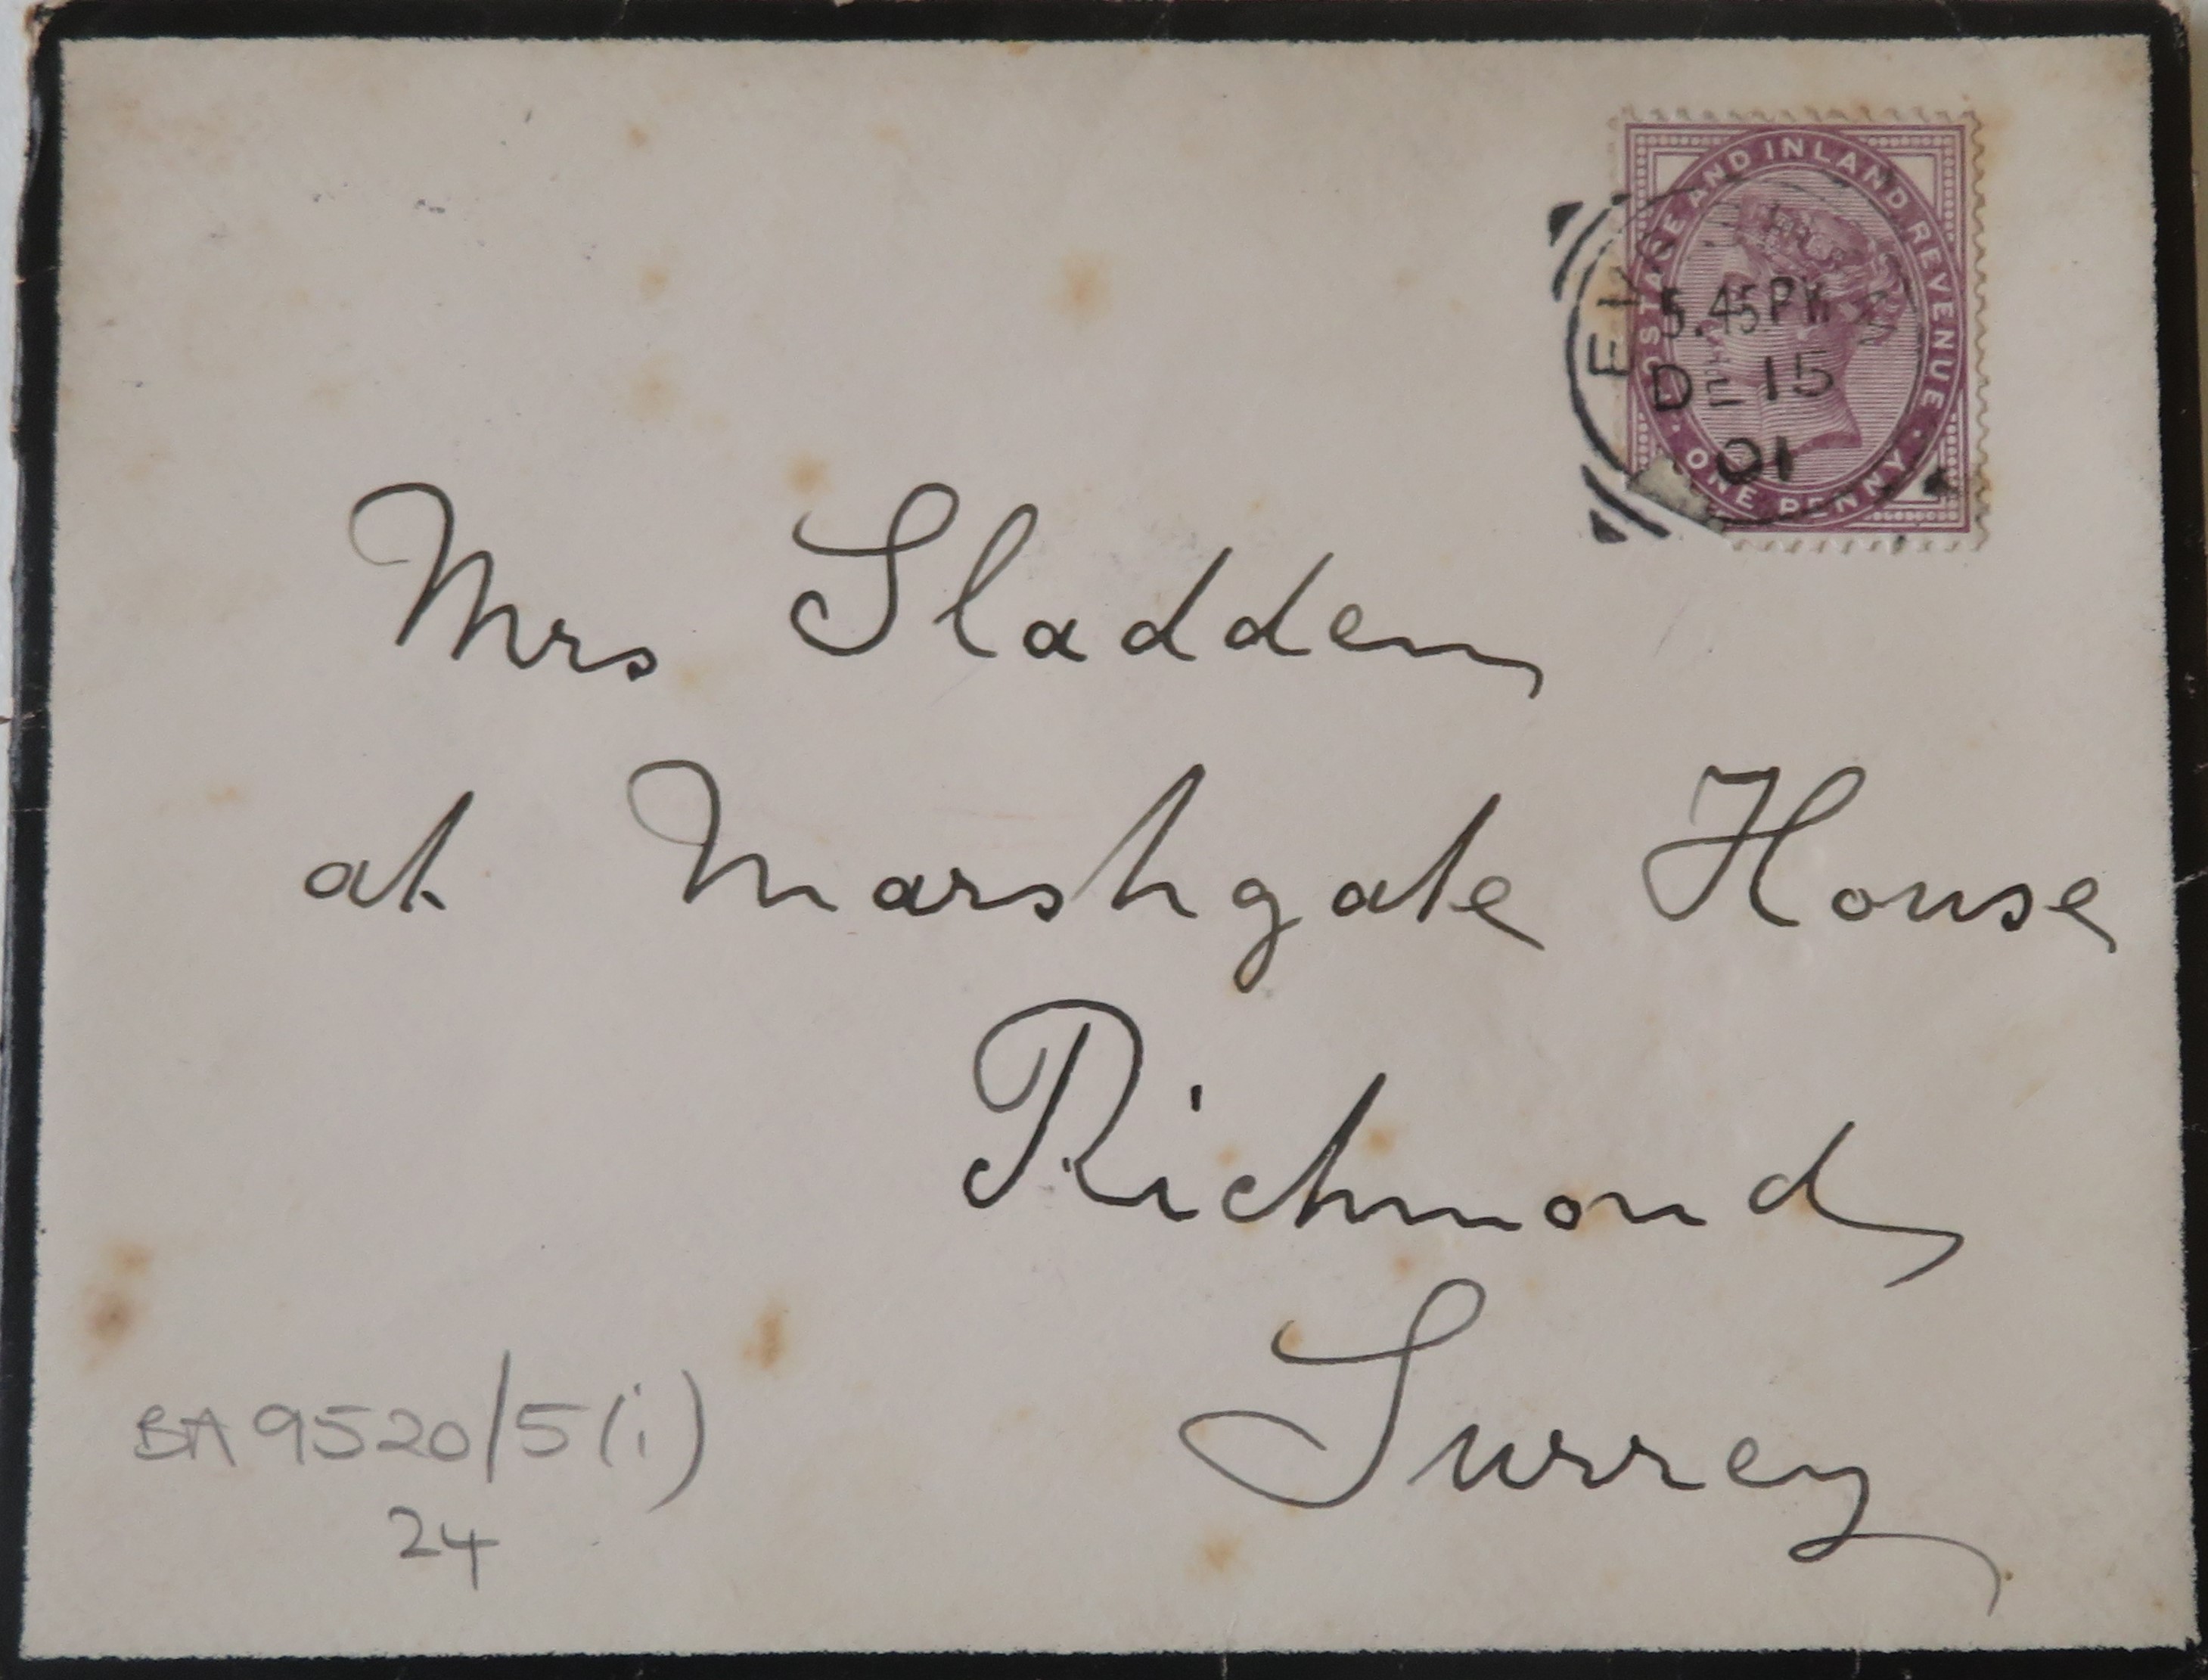 POSTAGE AND INLAND REVENUE
5.45PM
DE 15
01
ONE PENNY
Mrs Sladden
at Marshgate House
Richmond
Surrey
BA 9520/5(i)
24